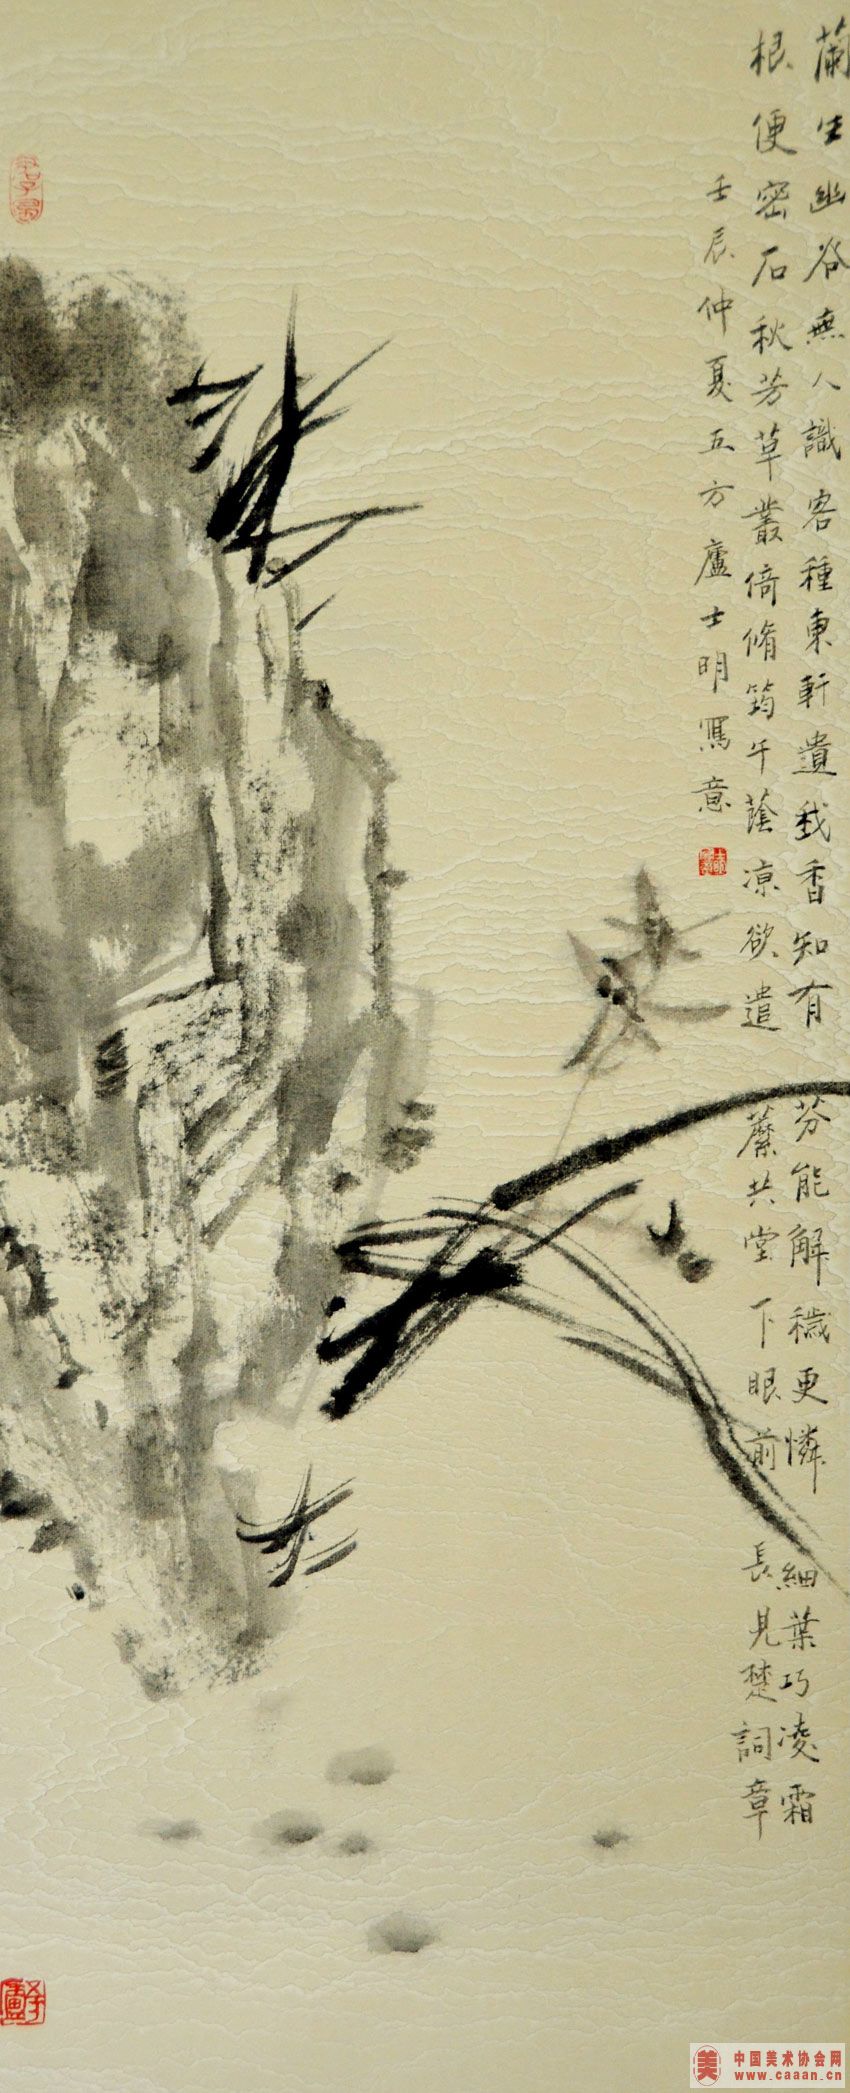 蘭生幽谷無人識客種東軒遺我香知有芬能解穢更憐細葉巧凌霜
根便密石秋芳草叢倚脩筠午蔭凉欲遣蘪共堂下眼前長見楚詞章
壬辰仲夏五方廬士明寫意
美 中国美术协会网
www.caaan.cn